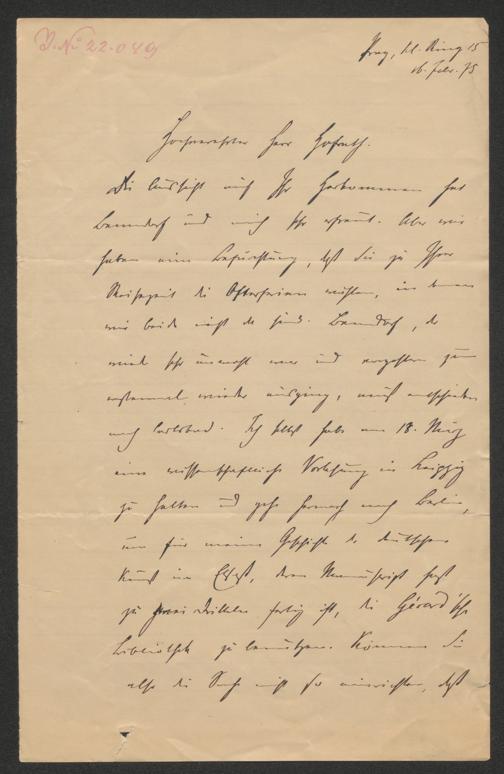 J. No 22.049
Prag, kl. Ring 15
16. Febr. 75
Hochverehrter Herr Hofrath.
Die Aussicht auf Ihr Herkommen hat
Benndorf und mich sehr erfreut. Aber wir
haben eine Befürchtung, daß Sie zu Ihrer
Reisezeit die Osterferien wählen, in denen
wir beide nicht da sind. Benndorf, der
wieder sehr unwohl war und vorgestern zum
erstenmal wieder ausging, muß entschieden
nach Carlsbad. Ich selbst habe am 18. März
eine wissenschaftliche Vorlesung in Leipzig
zu halten und gehe hernach nach Berlin,
um für meine Geschichte der deutschen
Kunst im Elsaß, deren Manuscript fast
zu zwei Dritteln fertig ist, die Gérard'sche
Bibliothek zu benützen. Können Sie
also die Sache nicht so einrichten, daß